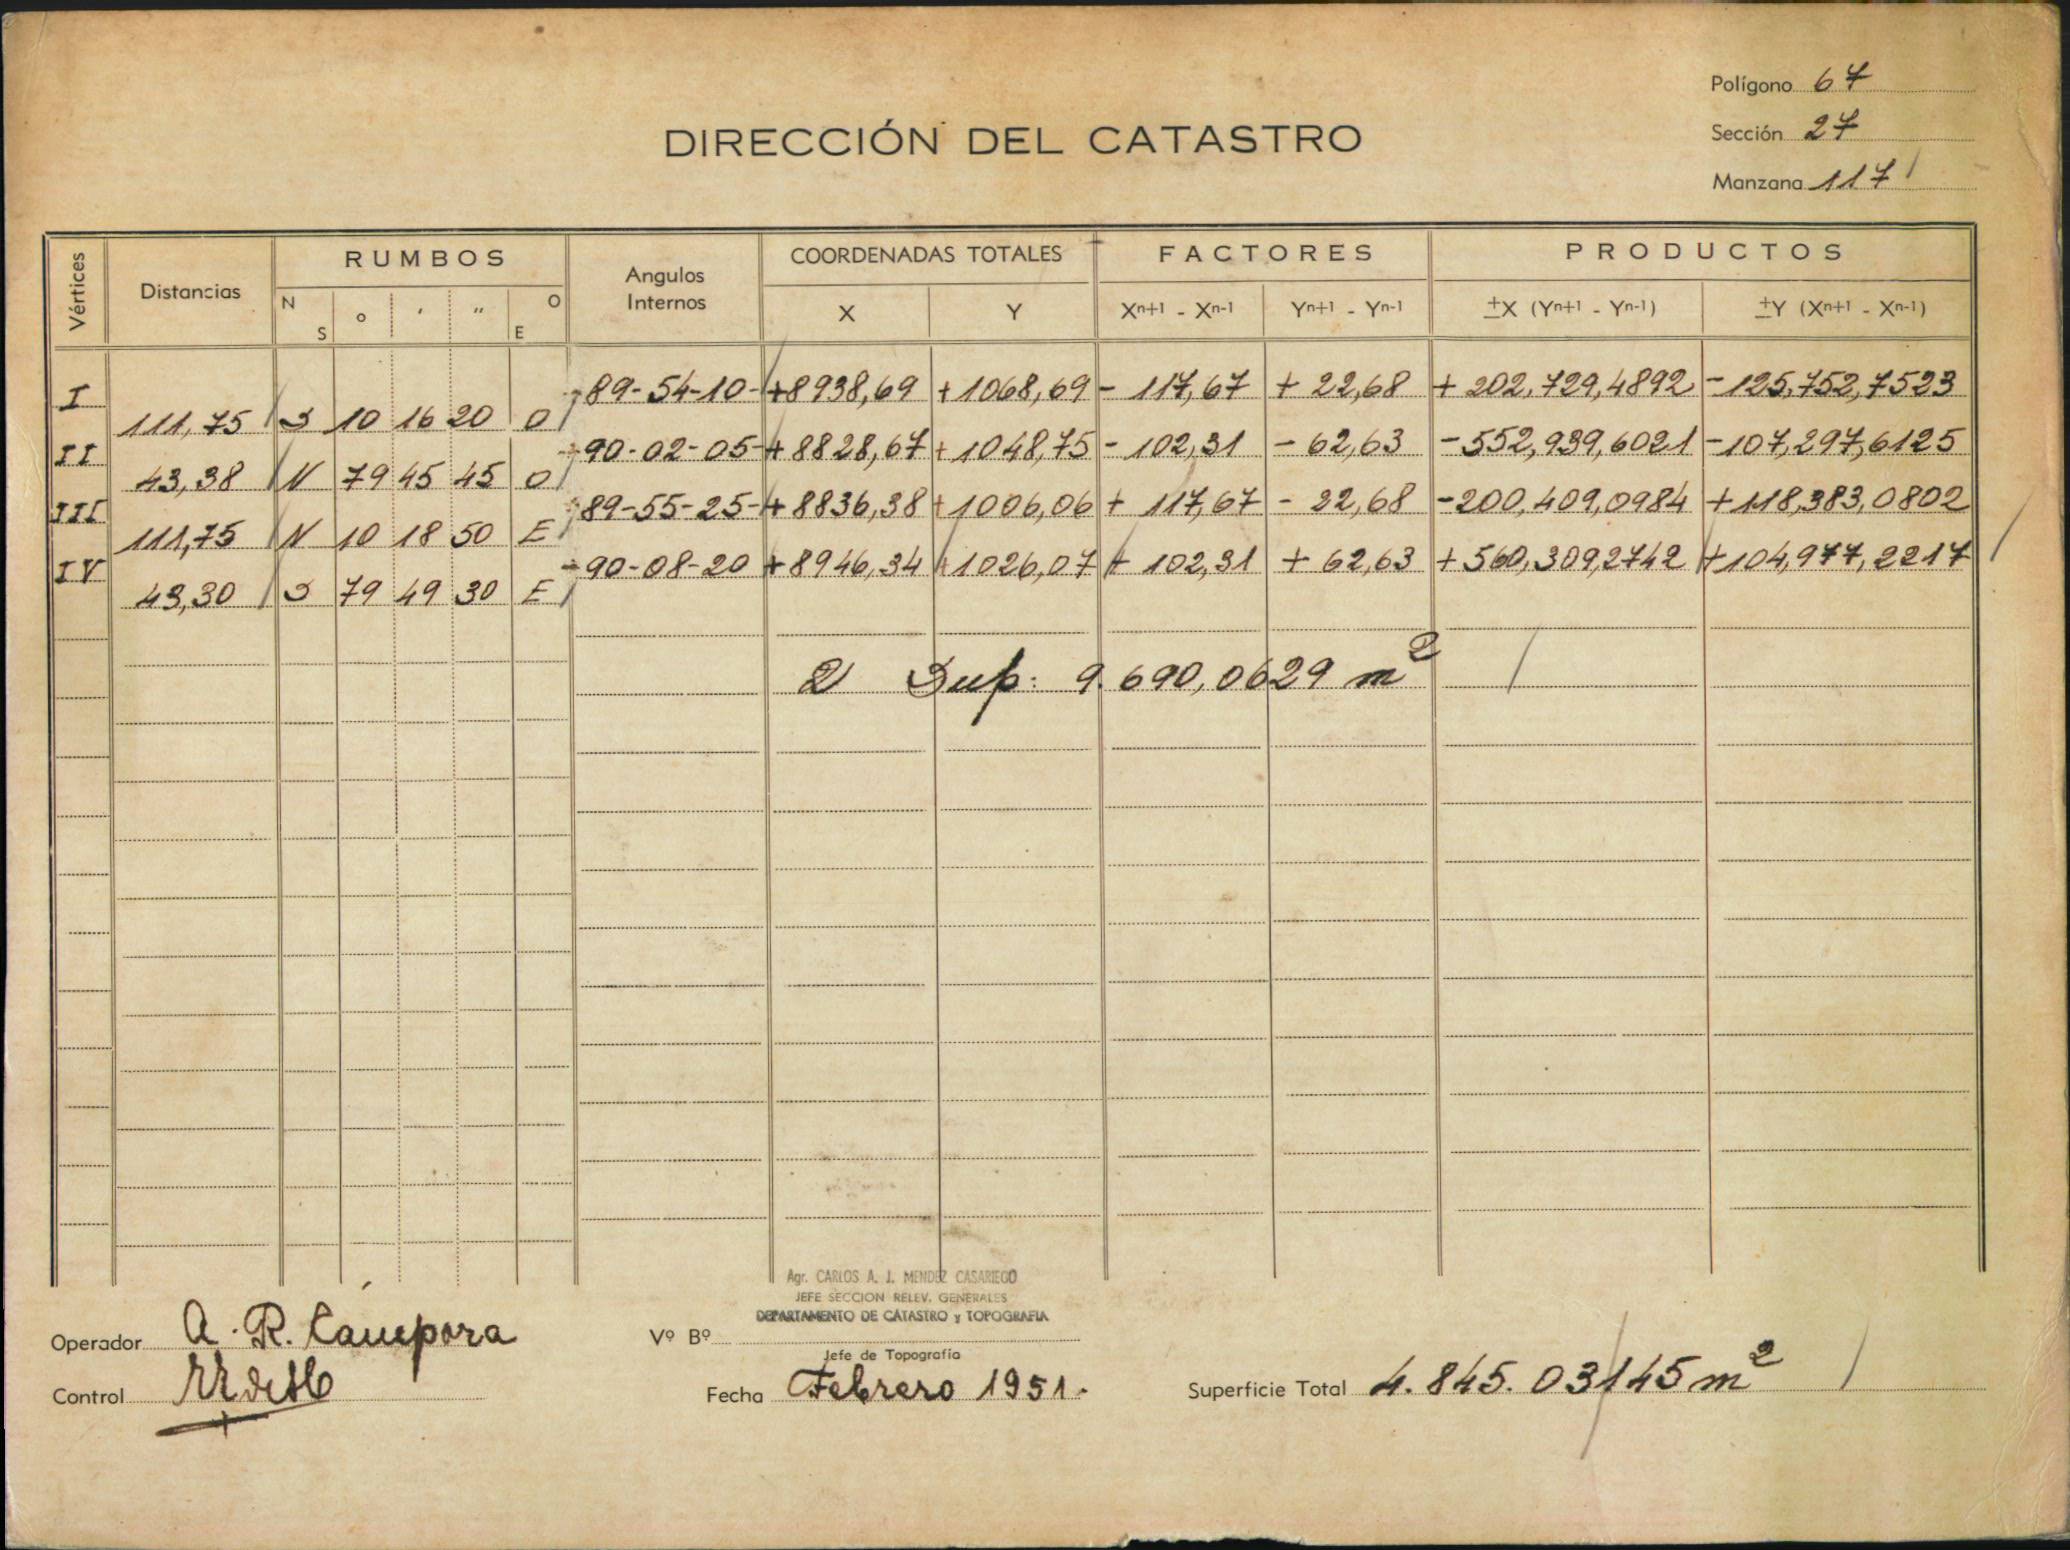 Polígono 67
DIRECCIÓN DEL CATASTRO
Sección 27
Manzana 117
Vértices Distancias RUMBOS Angulos Internos COORDENADAS TOTALES FACTORES PRODUCTOS
N S o ' " O E X Y Xn+1 - Xn-1 Yn+1 - Yn-1 ±X (Yn+1 - Yn-1) ±Y (Xn+1 - Xn-1)
I 89-54-10- +8938,69 +1068,69 - 117,67 + 22,68 + 202.729,4892 -125.752,7523
111,75 S 10 16 20 O
II 90-02-05- +8828,67 +1048,75 - 102,31 - 62,63 -552,939,6021 -107,297,6125
43,38 N 79 45 45 O
III 89-55-25- +8836,38 +1006,06 + 117,67 - 22,68 -200.409,0984 +118,383,0802
111,75 N 10 18 50 E
IV 90-08-20 +8946,34 +1026,07 + 102,31 + 62,63 +560,309,2742 +104,977,2217
43,30 S 79 49 30 E
2 Sup: 9.690,0629 m2
Agr. CARLOS A. J. MENDEZ CASARIEGO
JEFE SECCION RELEV. GENERALES
DEPARTAMENTO DE CATASTRO y TOPOGRAFIA
Operador A. R. Cámpora Vº Bº
Jefe de Topografía
Control Fecha Febrero 1951. Superficie Total 4.845.03145 m2